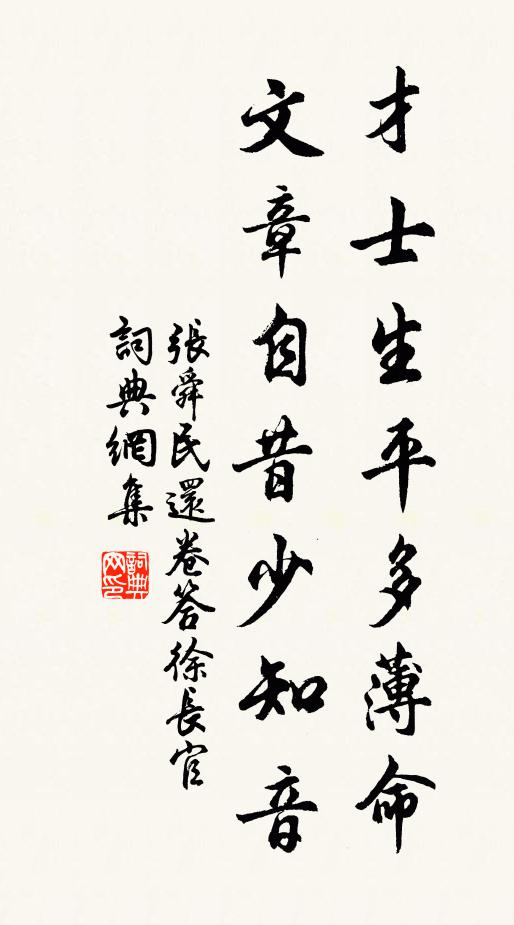 才士生平多薄命
文章自昔少知音
張舜民還卷答徐長官
詞典網集
詞典网印